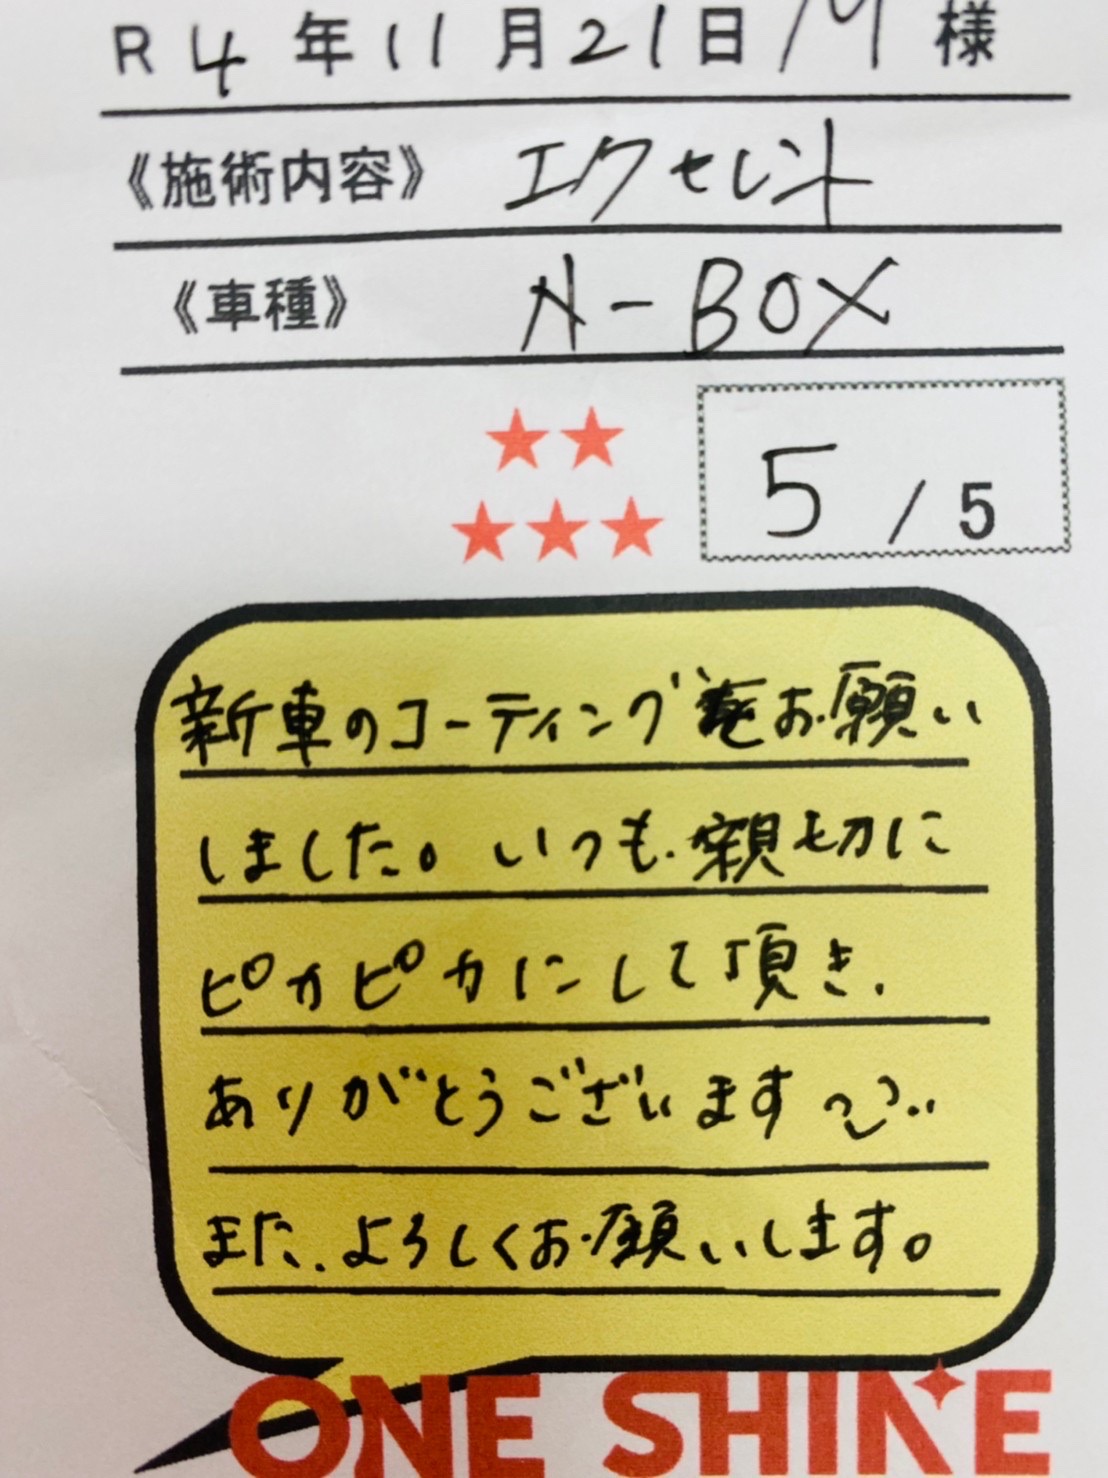 R 4 年 11 月 21 日 M 様
《施術内容》 エクセレント
《車種》 N-BOX
★★
★★★ 5 / 5
新車のコーティングをお願い
しました。いつも親切に
ピカピカにして頂き、
ありがとうございます
また、よろしくお願いします。
ONE SHINE